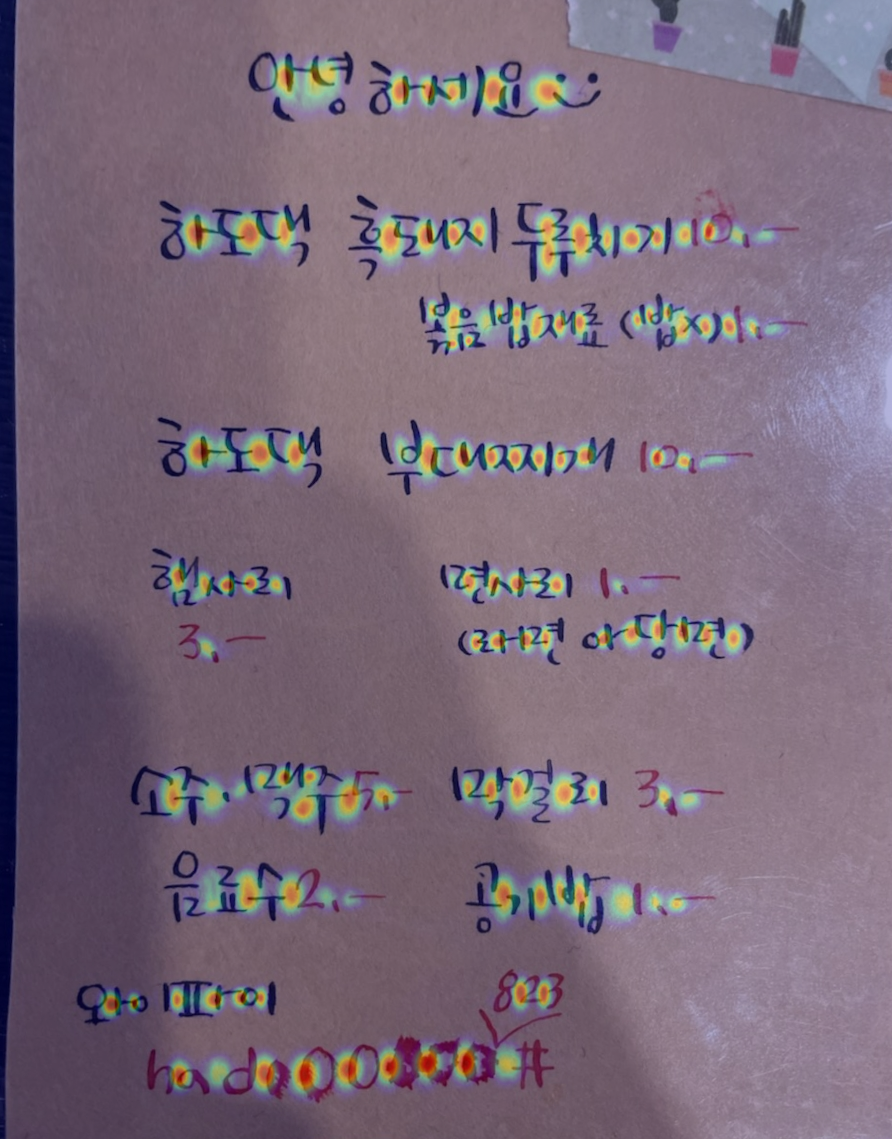 안녕하세요
하도댁 흑돼지 두루치기 10.-
볶음밥재료 (밥x) 1.-
하도댁 부대찌개 10.-
햄사리 면사리 1.-
3.- (라면 아당면)
소주.맥주 5.- 막걸리 3.-
음료수 2.- 공기밥 1.-
와이파이
823
#